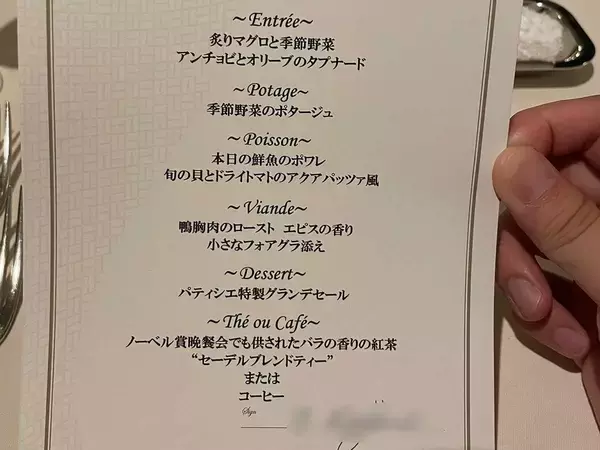 ～Entrée～
炙りマグロと季節野菜
アンチョビとオリーブのタプナード
～Potage～
季節野菜のポタージュ
～Poisson～
本日の鮮魚のポワレ
旬の貝とドライトマトのアクアパッツァ風
～Viande～
鴨胸肉のロースト エピスの香り
小さなフォアグラ添え
～Dessert～
パティシエ特製グランデセール
～Thé ou Café～
ノーベル賞晩餐会でも供されたバラの香りの紅茶
“セーデルブレンドティー”
または
コーヒー
Sign